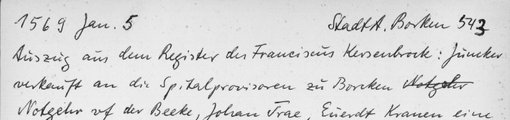 1569 Jan. 5 StadtA. Borken 543
Auszug aus dem Register des Franciscus Kersenbrock: Juncker
verkauft an die Spitalprovisoren zu Borcken Notgehr
Notgehr vf der Beeke, Johan Trae, Euerdt Kranen eine